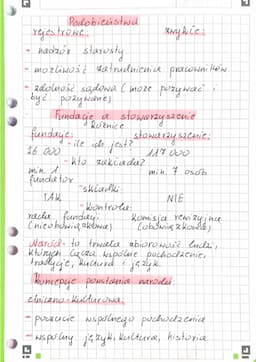 Podobieństwa
rejestrowe: zwykłe:
- nadzór starosty
- możliwość zatrudnienia pracowników
- zdolność sądowa (może pozywać i
być pozywane)
Fundacje a stowarzyszenie
Różnice
fundacje: stowarzyszenie:
- ile ich jest?
26 000 117 000
- kto zakłada?
min. 1 min. 7 osób
fundator
- składki
TAK NIE
- kontrola:
rada fundacji Komisja rewizyjna
(nieobowiązkowa) (obowiązkowa)
Naród - to trwała zbiorowość ludzi,
których łączą wspólne pochodzenie,
tradycje, kultura i język.
Koncepcje powstania narodu:
etniczno-kulturowa:
- poczucie wspólnego pochodzenia
- wspólny język, kultura, historia